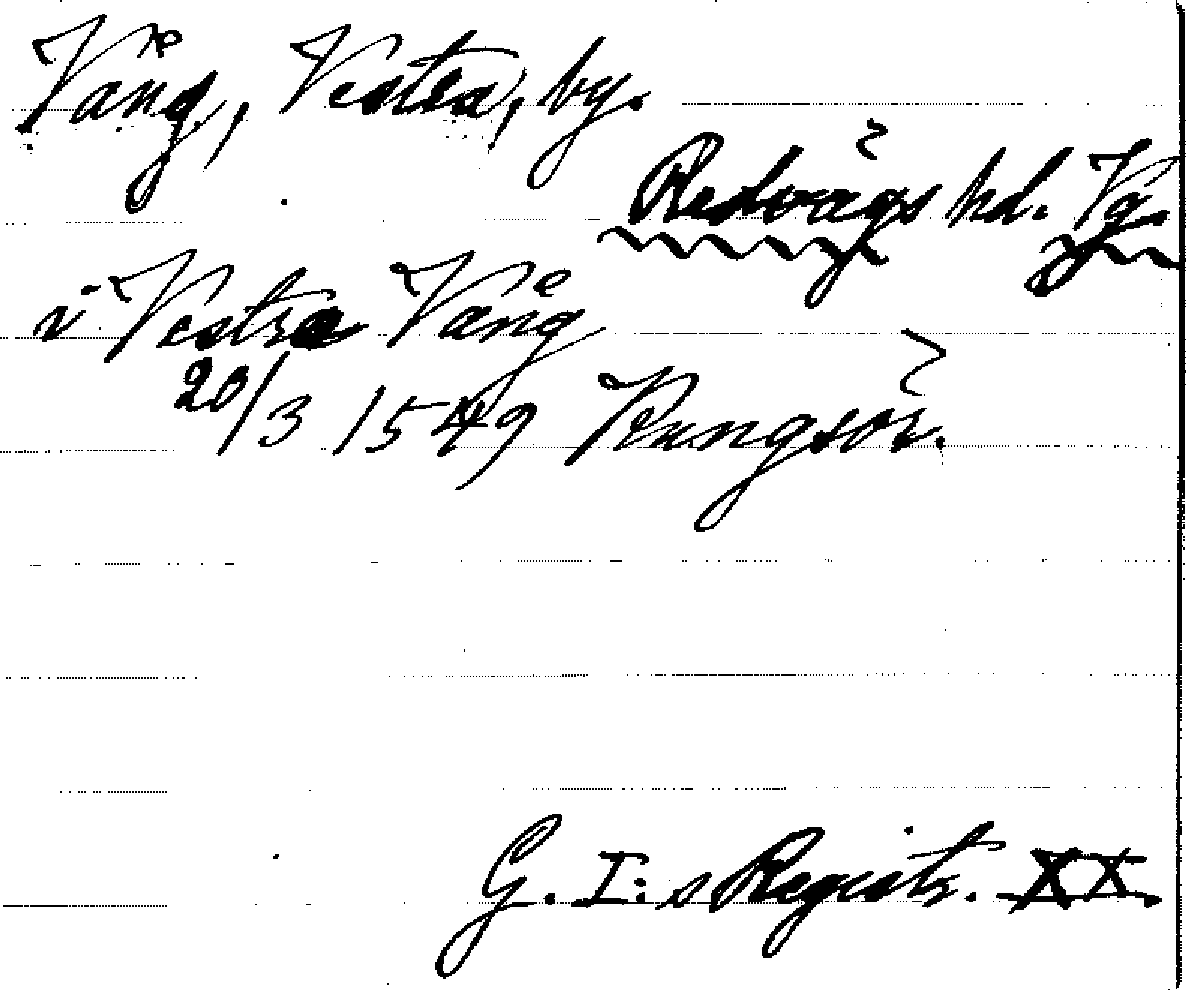 Vång, Vestra, by.
Redvägs hd. Vg.
i Vestra Vång
20/3 1549 Kungsör.
G. I:s Registr. XX.